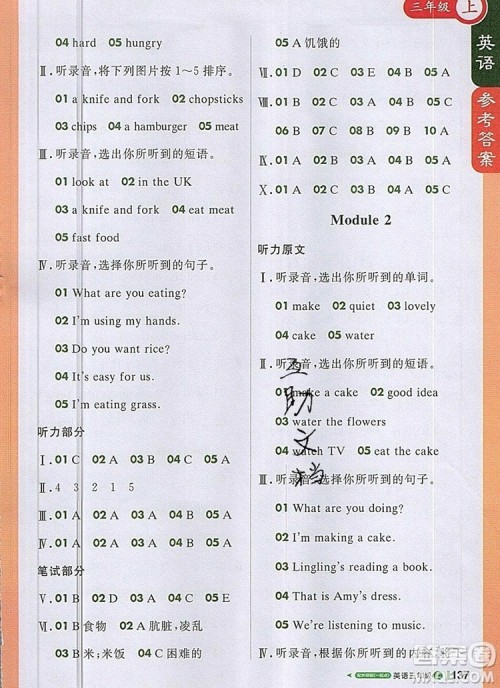 三年级 上
英语
参考答案
04 hard 05 hungry
Ⅱ. 听录音，将下列图片按 1~5 排序。
01 a knife and fork 02 chopsticks
03 chips 04 a hamburger 05 meat
Ⅲ. 听录音，选出你所听到的短语。
01 look at 02 in the UK
03 a knife and fork 04 eat meat
05 fast food
Ⅳ. 听录音，选择你所听到的句子。
01 What are you eating?
02 I'm using my hands.
03 Do you want rice?
04 It's easy for us.
05 I'm eating grass.
听力部分
Ⅰ. 01 C 02 A 03 B 04 C 05 A
Ⅱ. 4 3 2 1 5
Ⅲ. 01 A 02 A 03 A 04 B 05 A
Ⅳ. 01 A 02 B 03 A 04 B 05 A
笔试部分
Ⅴ. 01 B 02 D 03 A 04 C 05 E
Ⅵ. 01 B 食物 02 A 肮脏，凌乱
03 B 米；米饭 04 C 困难的
05 A 饥饿的
Ⅶ. 01 D 02 C 03 E 04 B 05 A
Ⅷ. 01 A 02 C 03 A 04 B 05 C
06 B 07 B 08 C 09 B 10 A
Ⅸ. 01 B 02 A 03 B 04 A 05 B
Ⅹ. 01 A 02 C 03 A 04 B 05 C
Module 2
听力原文
Ⅰ. 听录音，选出你所听到的单词。
01 make 02 quiet 03 lovely
04 cake 05 water
Ⅱ. 听录音，选出你所听到的短语。
01 make a cake 02 good idea
03 water the flowers
04 watch TV 05 eat the cake
Ⅲ. 听录音，选择你所听到的句子。
01 What are you doing?
02 I'm making a cake.
03 Lingling's reading a book.
04 That is Amy's dress.
05 We're listening to music.
Ⅳ. 听录音，根据你所听的内容，将下
互助文档
英语三年级 上 137